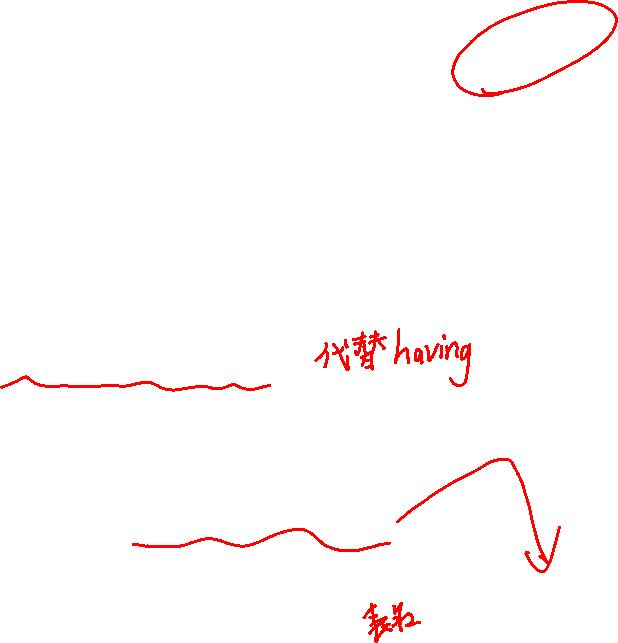 代替having